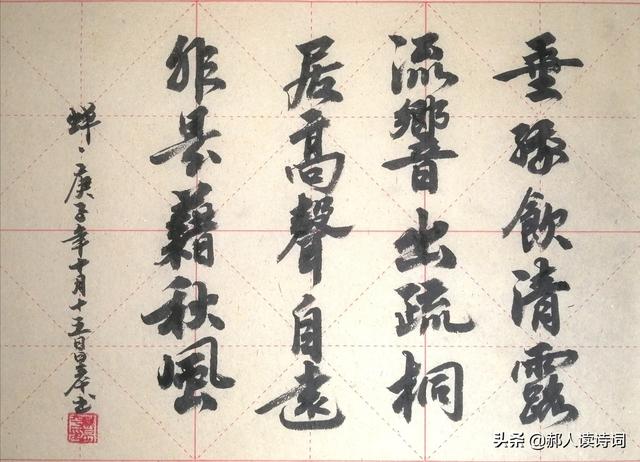 垂緌飲清露
流響出疏桐
居高聲自遠
非是藉秋風
蟬、庚子年十月十五日
头条 @郝人读诗词